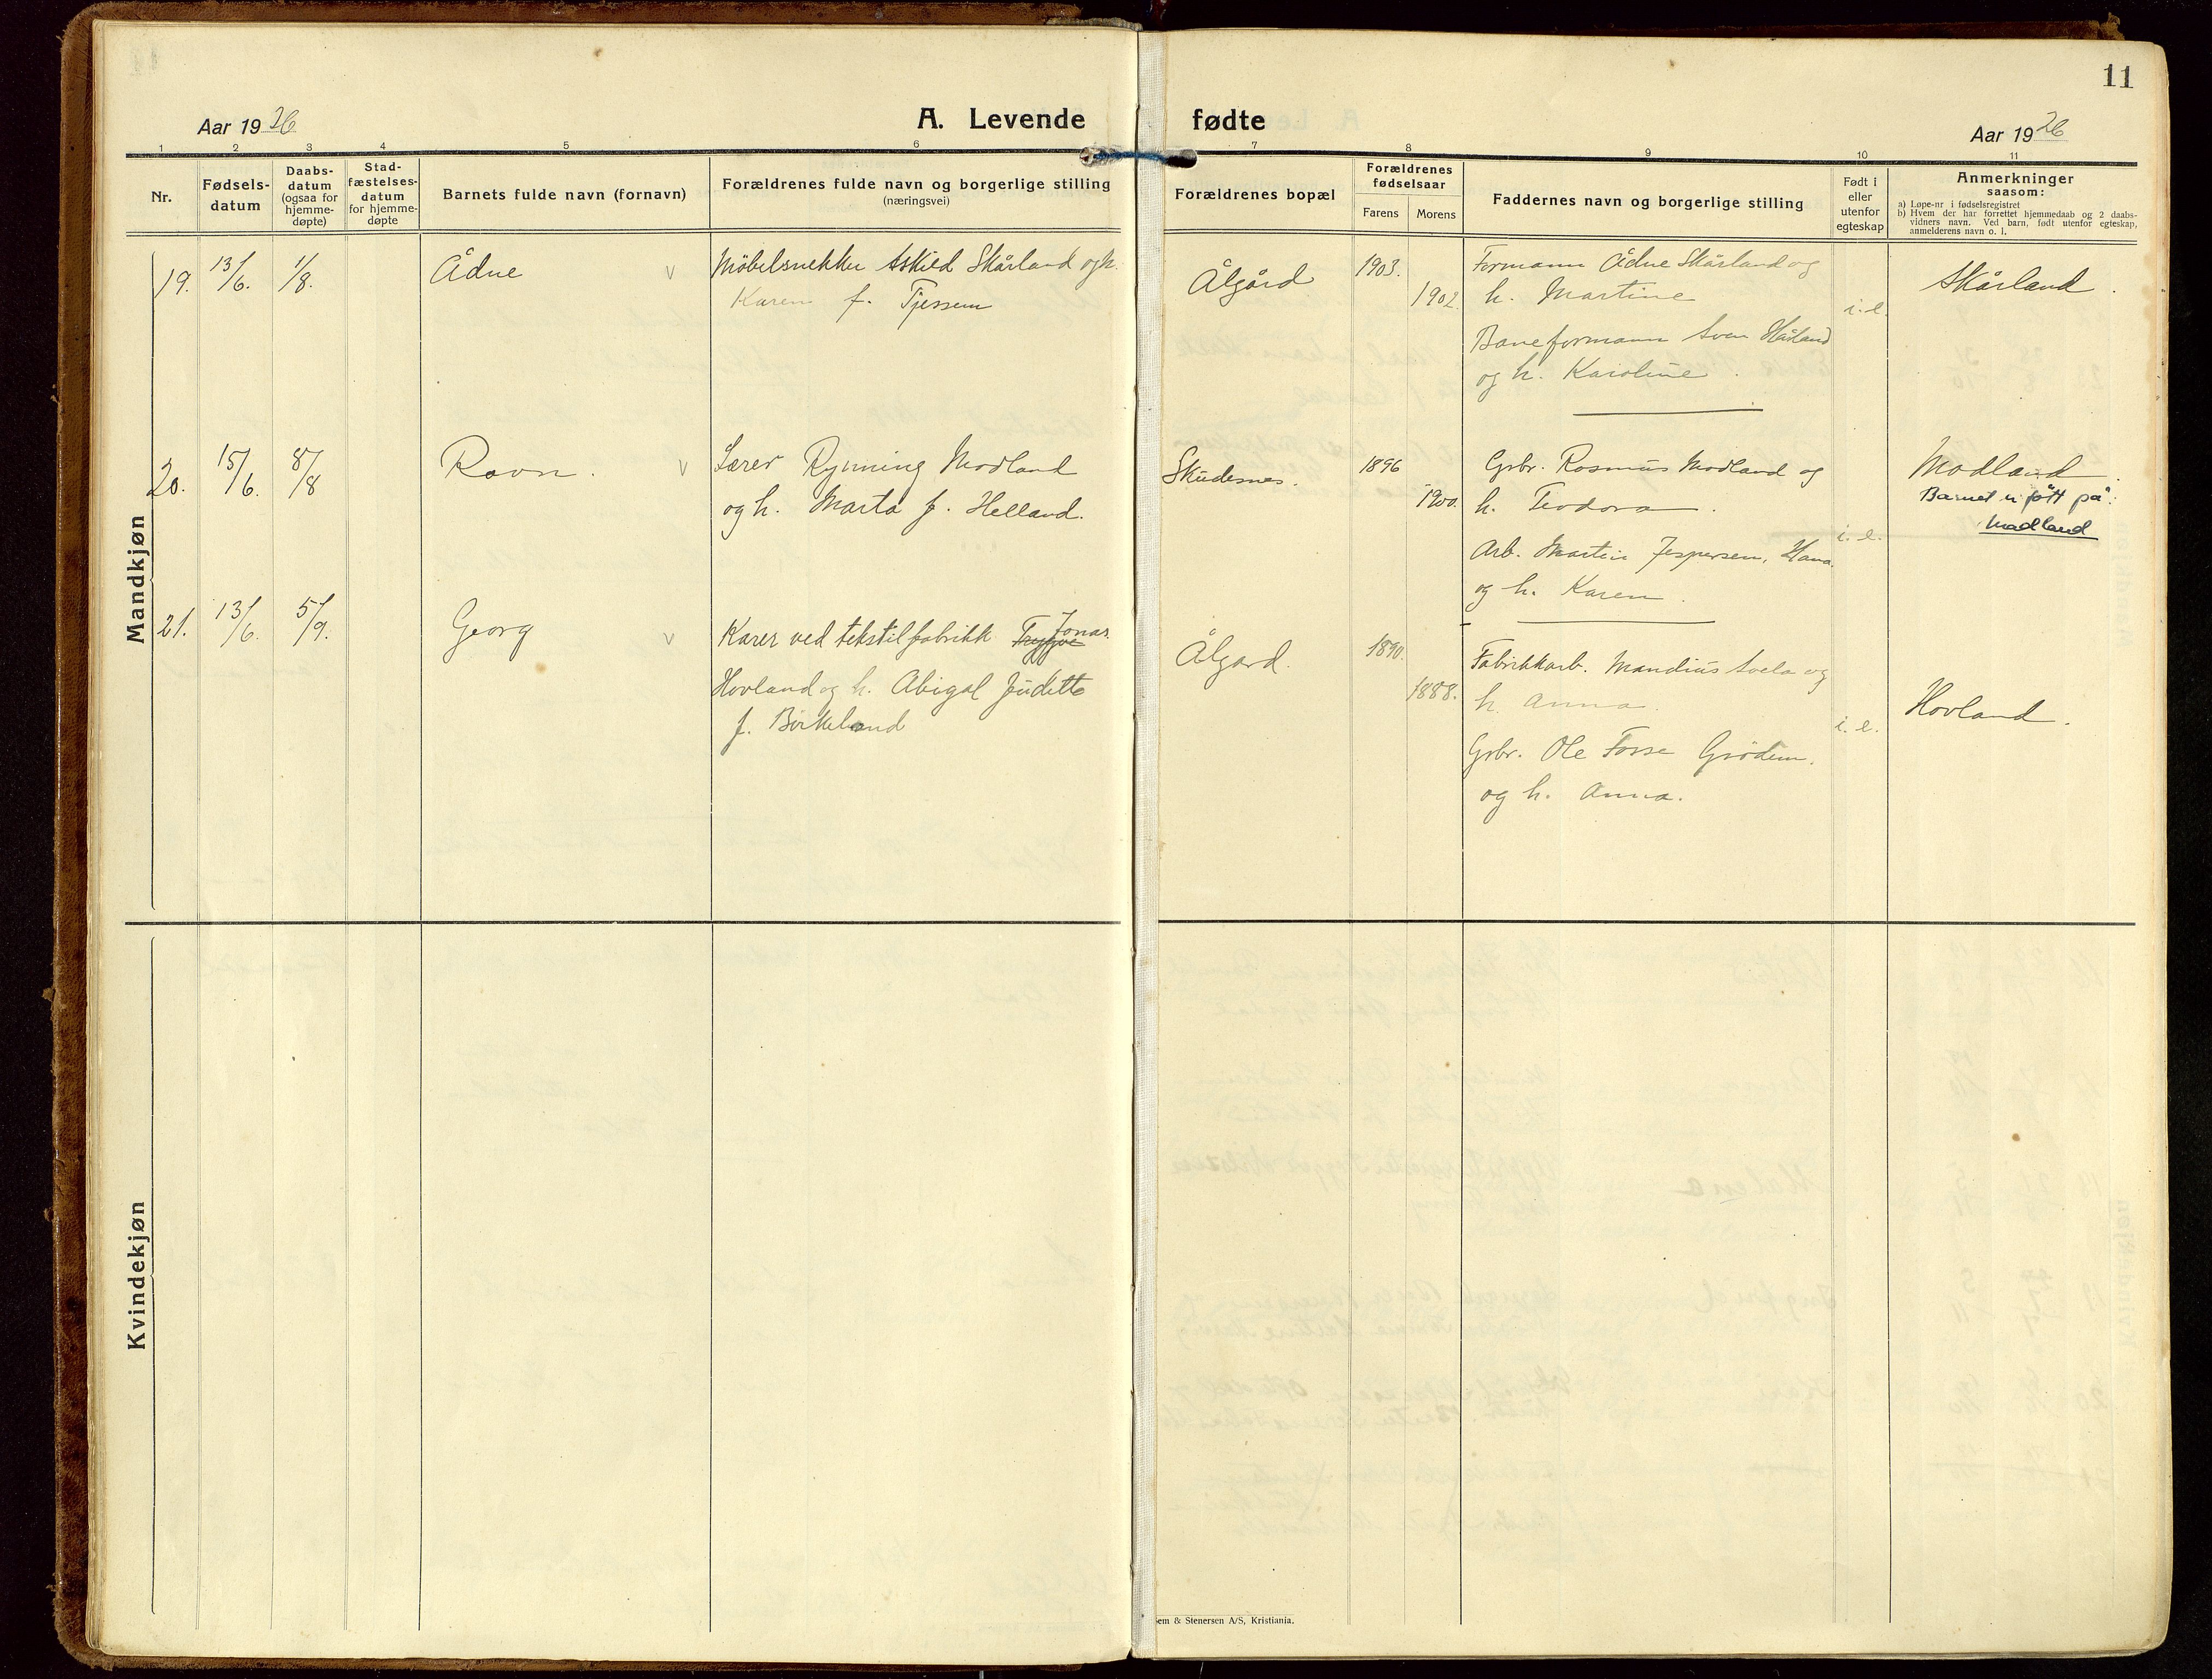 11
Aar 1926
A. Levende fødte
Aar 1926
1 2 3 4 5 6 7 8 9 10 11
Nr.
Fødsels-
datum
Daabs-
datum
(ogsaa for
hjemme-
døpte)
Stad-
fæstelses-
datum
for hjemme-
døpte
Barnets fulde navn (fornavn)
Forældrenes fulde navn og borgerlige stilling
(næringsvei)
Forældrenes bopæl
Forældrenes
fødselsaar
Farens Morens
Faddernes navn og borgerlige stilling
Født i
eller
utenfor
egteskap
Anmerkninger
saasom:
a) Løpe-nr i fødselsregistret
b) Hvem der har forrettet hjemmedaab og 2 daabs-
vidners navn. Ved barn, født utenfor egteskap,
anmelderens navn o. l.
Mandkjøn
19. 13/6. 1/8. Ådne v
Møbelsnekker Askild Skårland og h.
Karen f. Tjessem
Ålgård
1903.
1902.
Formann Ådne Skårland og
h. Martine
Baneformann Sven Håland
og h. Karoline.
i. e.
Skårland.
20. 15/6. 8/8 Ravn. v
Lærer Rynning Modland
og h. Marta f. Helland.
Skudesnes.
1896
1900.
Grbr. Rasmus Modland og
h. Teodora.
Arb. Martin Jespersen, Hana.
og h. Karen.
i. e.
Modland
Barnet er født på:
Madland
21. 13/6. 5/9. Georg v
Karer ved tekstilfabrikk Trygve Jonas
Hovland og h. Abigal Juditte
f. Birkeland
Ålgard.
1890.
1888.
Fabrikkarb. Mandius Svela og
h. Anna.
Grbr. Ole Fosse Grödem.
og h. Anna.
i. e.
Hovland.
Kvindekjøn
em & Stenersen A/S, Kristiania.